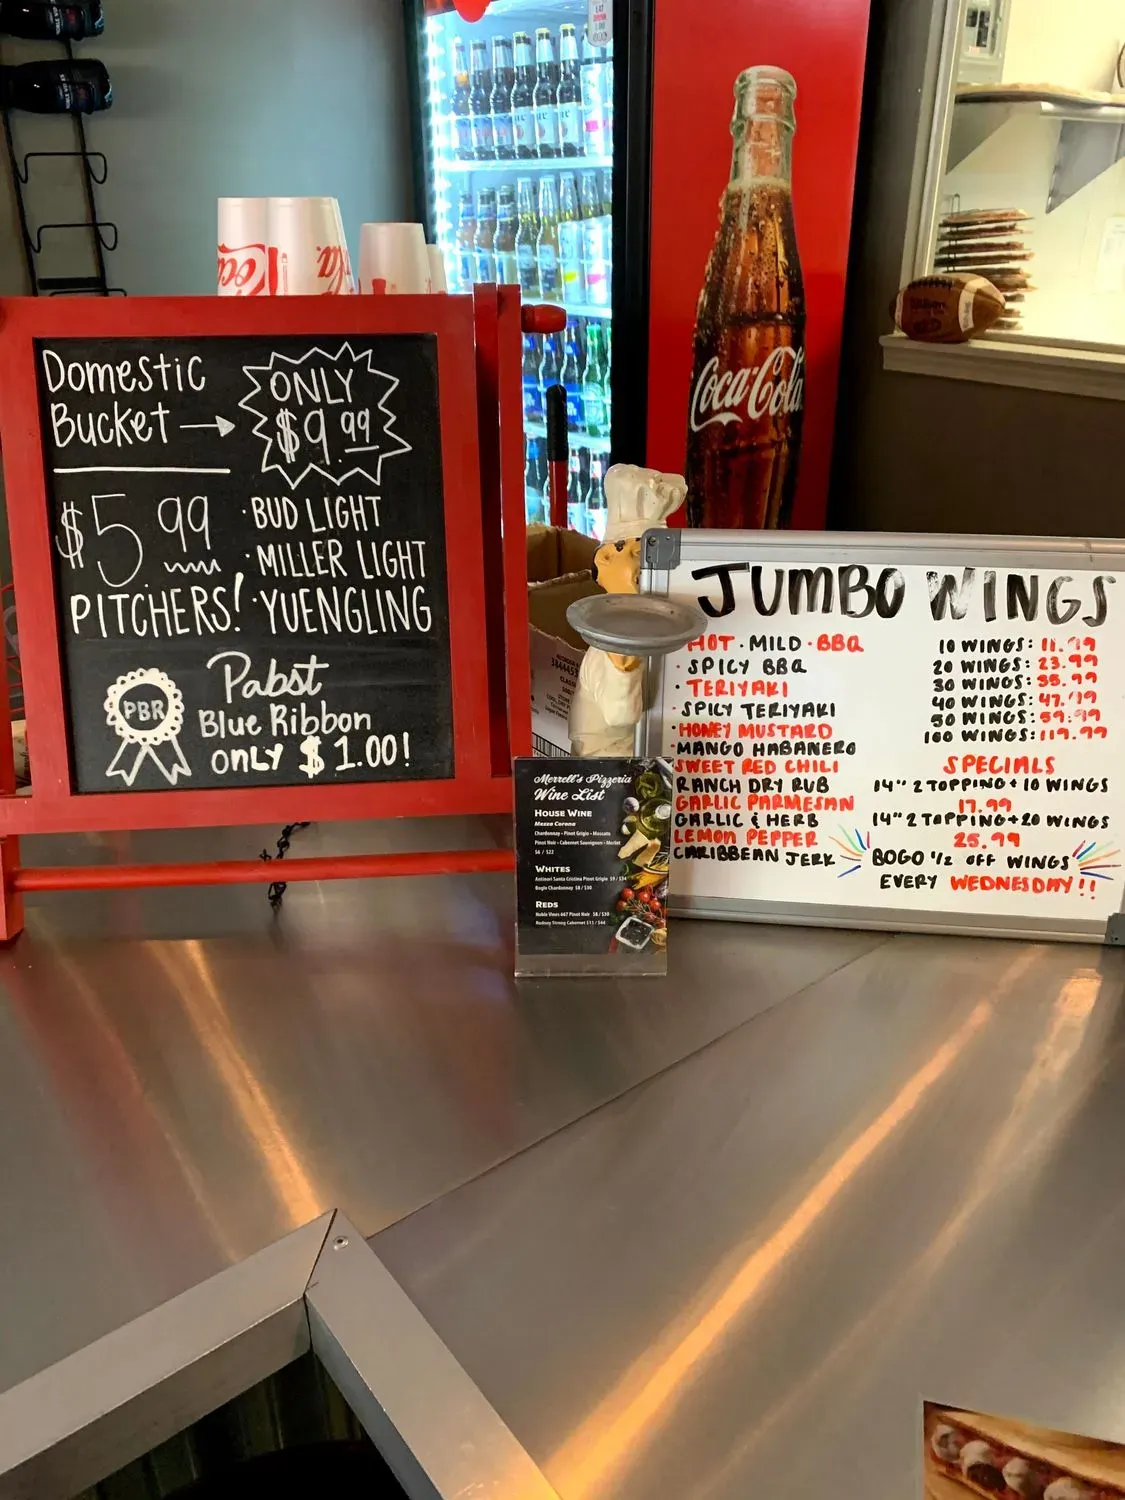 Coca-Cola
Domestic
Bucket →
ONLY
$9.99
$5.99
PITCHERS!
· BUD LIGHT
· MILLER LIGHT
· YUENGLING
PBR
Pabst
Blue Ribbon
only $1.00!
Merrell's Pizzeria
Wine List
HOUSE WINE
Mezza Corona
Chardonnay • Pinot Grigio • Moscato
Pinot Noir • Cabernet Sauvignon • Merlot
$6 / $22
WHITES
Antinori Santa Cristina Pinot Grigio $9 / $34
Bogle Chardonnay $8 / $30
REDS
Noble Vines 667 Pinot Noir $8 / $30
Rodney Strong Cabernet $11 / $44
JUMBO WINGS
HOT · MILD · BBQ
· SPICY BBQ
· TERIYAKI
· SPICY TERIYAKI
· HONEY MUSTARD
· MANGO HABANERO
SWEET RED CHILI
RANCH DRY RUB
GARLIC PARMESAN
GARLIC & HERB
LEMON PEPPER
CARIBBEAN JERK
10 WINGS: 11.99
20 WINGS: 23.99
30 WINGS: 35.99
40 WINGS: 47.99
50 WINGS: 59.99
100 WINGS: 119.99
SPECIALS
14" 2 TOPPING + 10 WINGS
17.99
14" 2 TOPPING + 20 WINGS
25.99
BOGO 1/2 OFF WINGS
EVERY WEDNESDAY!!